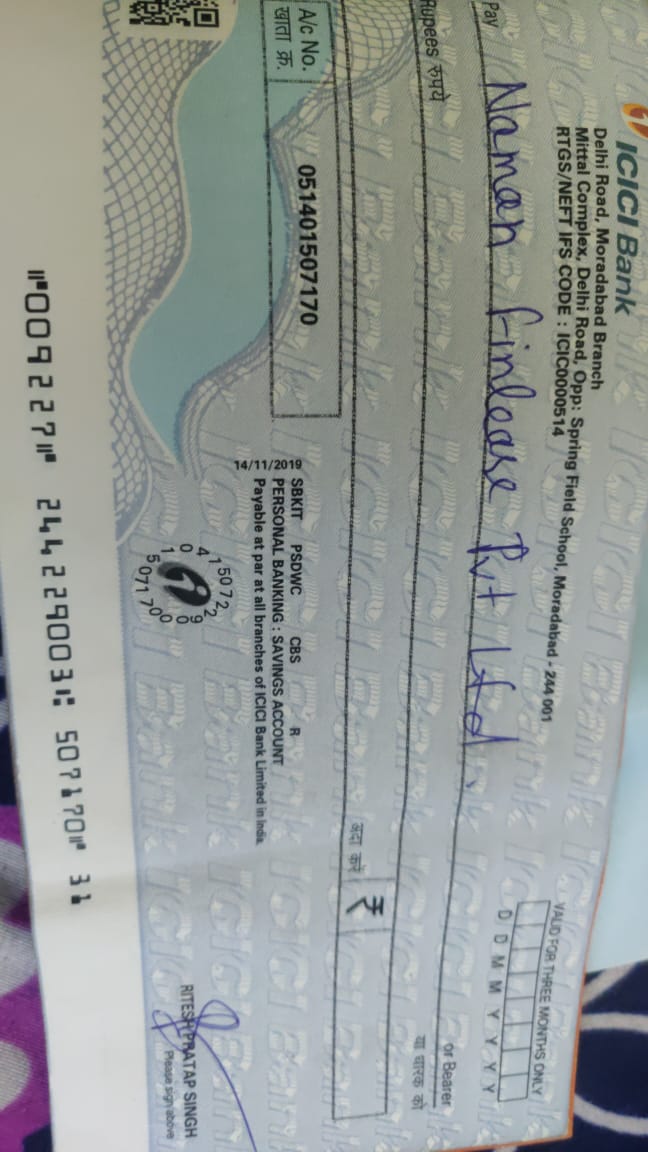 ICICI Bank
Delhi Road, Moradabad Branch
Mittal Complex, Delhi Road, Opp: Spring Field School, Moradabad - 244 001
RTGS/NEFT IFS CODE : ICIC0000514
VALID FOR THREE MONTHS ONLY
D D M M Y Y Y Y
Pay Naman Finlease Pvt Ltd.
or Bearer
या धारक को
Rupees रुपये
अदा करें ₹
A/c No.
खाता क्र.
051401507170
14/11/2019
SBKIT PSDWC CBS R
PERSONAL BANKING : SAVINGS ACCOUNT
Payable at par at all branches of ICICI Bank Limited in India
RITESH PRATAP SINGH
Please sign above
⑈009227⑈ 244229003⑆ 507170⑈ 31